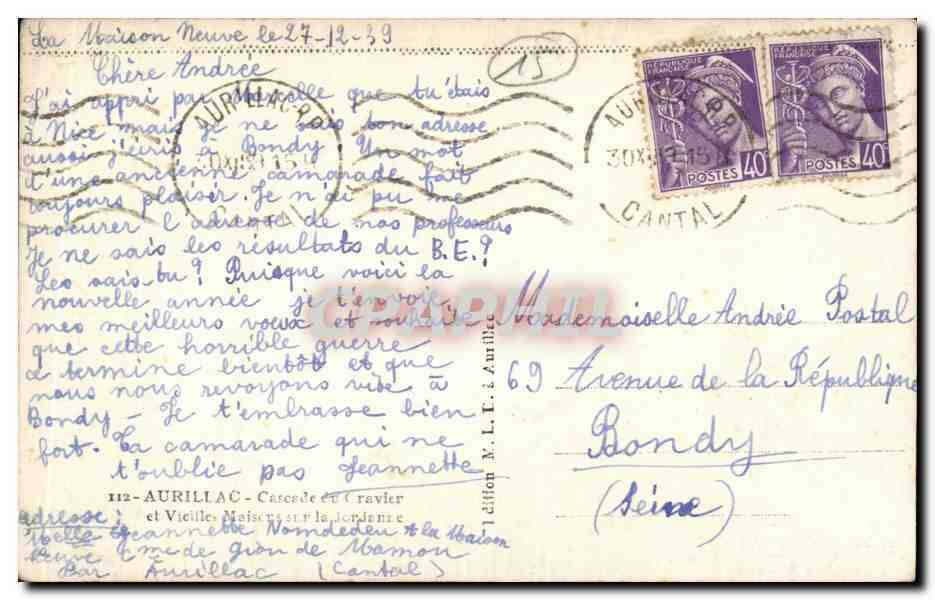 La Maison Neuve le 27-12-39
15
Chère Andrée
J'ai appri par que tu étais
à Nice mais je ne sais ton adresse
aussi j'écris à Bondy Un mot
d'une ancienne camarade fait
toujours plaisir. Je n'ai pu me
procurer l'adresse de nos professeurs
Je ne sais les résultats du B.E?
Les sais-tu? Puisque voici la
nouvelle année je t'envoie
mes meilleurs voeux et souhaite
que cette horrible guerre
se termine bientôt et que
nous nous revoyons vite à
Bondy - Je t'embrasse bien
fort. Ta camarade qui ne
t'oublie pas Jeannette
112 - AURILLAC - Cascade du Gravier
et Vieilles Maisons sur la Jordanne
adresse:
Melle Jeannette Nomdedeu à la Maison
Neuve Cme de Giou de Mamou
Par Aurillac (Cantal)
Edition M. L. E. à Aurillac
RÉPUBLIQUE
FRANÇAISE
POSTES 40c
RÉPUBLIQUE
FRANÇAISE
POSTES 40c
AURILLAC R.P.
CANTAL
AURILLAC R.P.
CANTAL
Mademoiselle Andrée Postal
69 Avenue de la République
Bondy
(Seine)
CPAPHIL